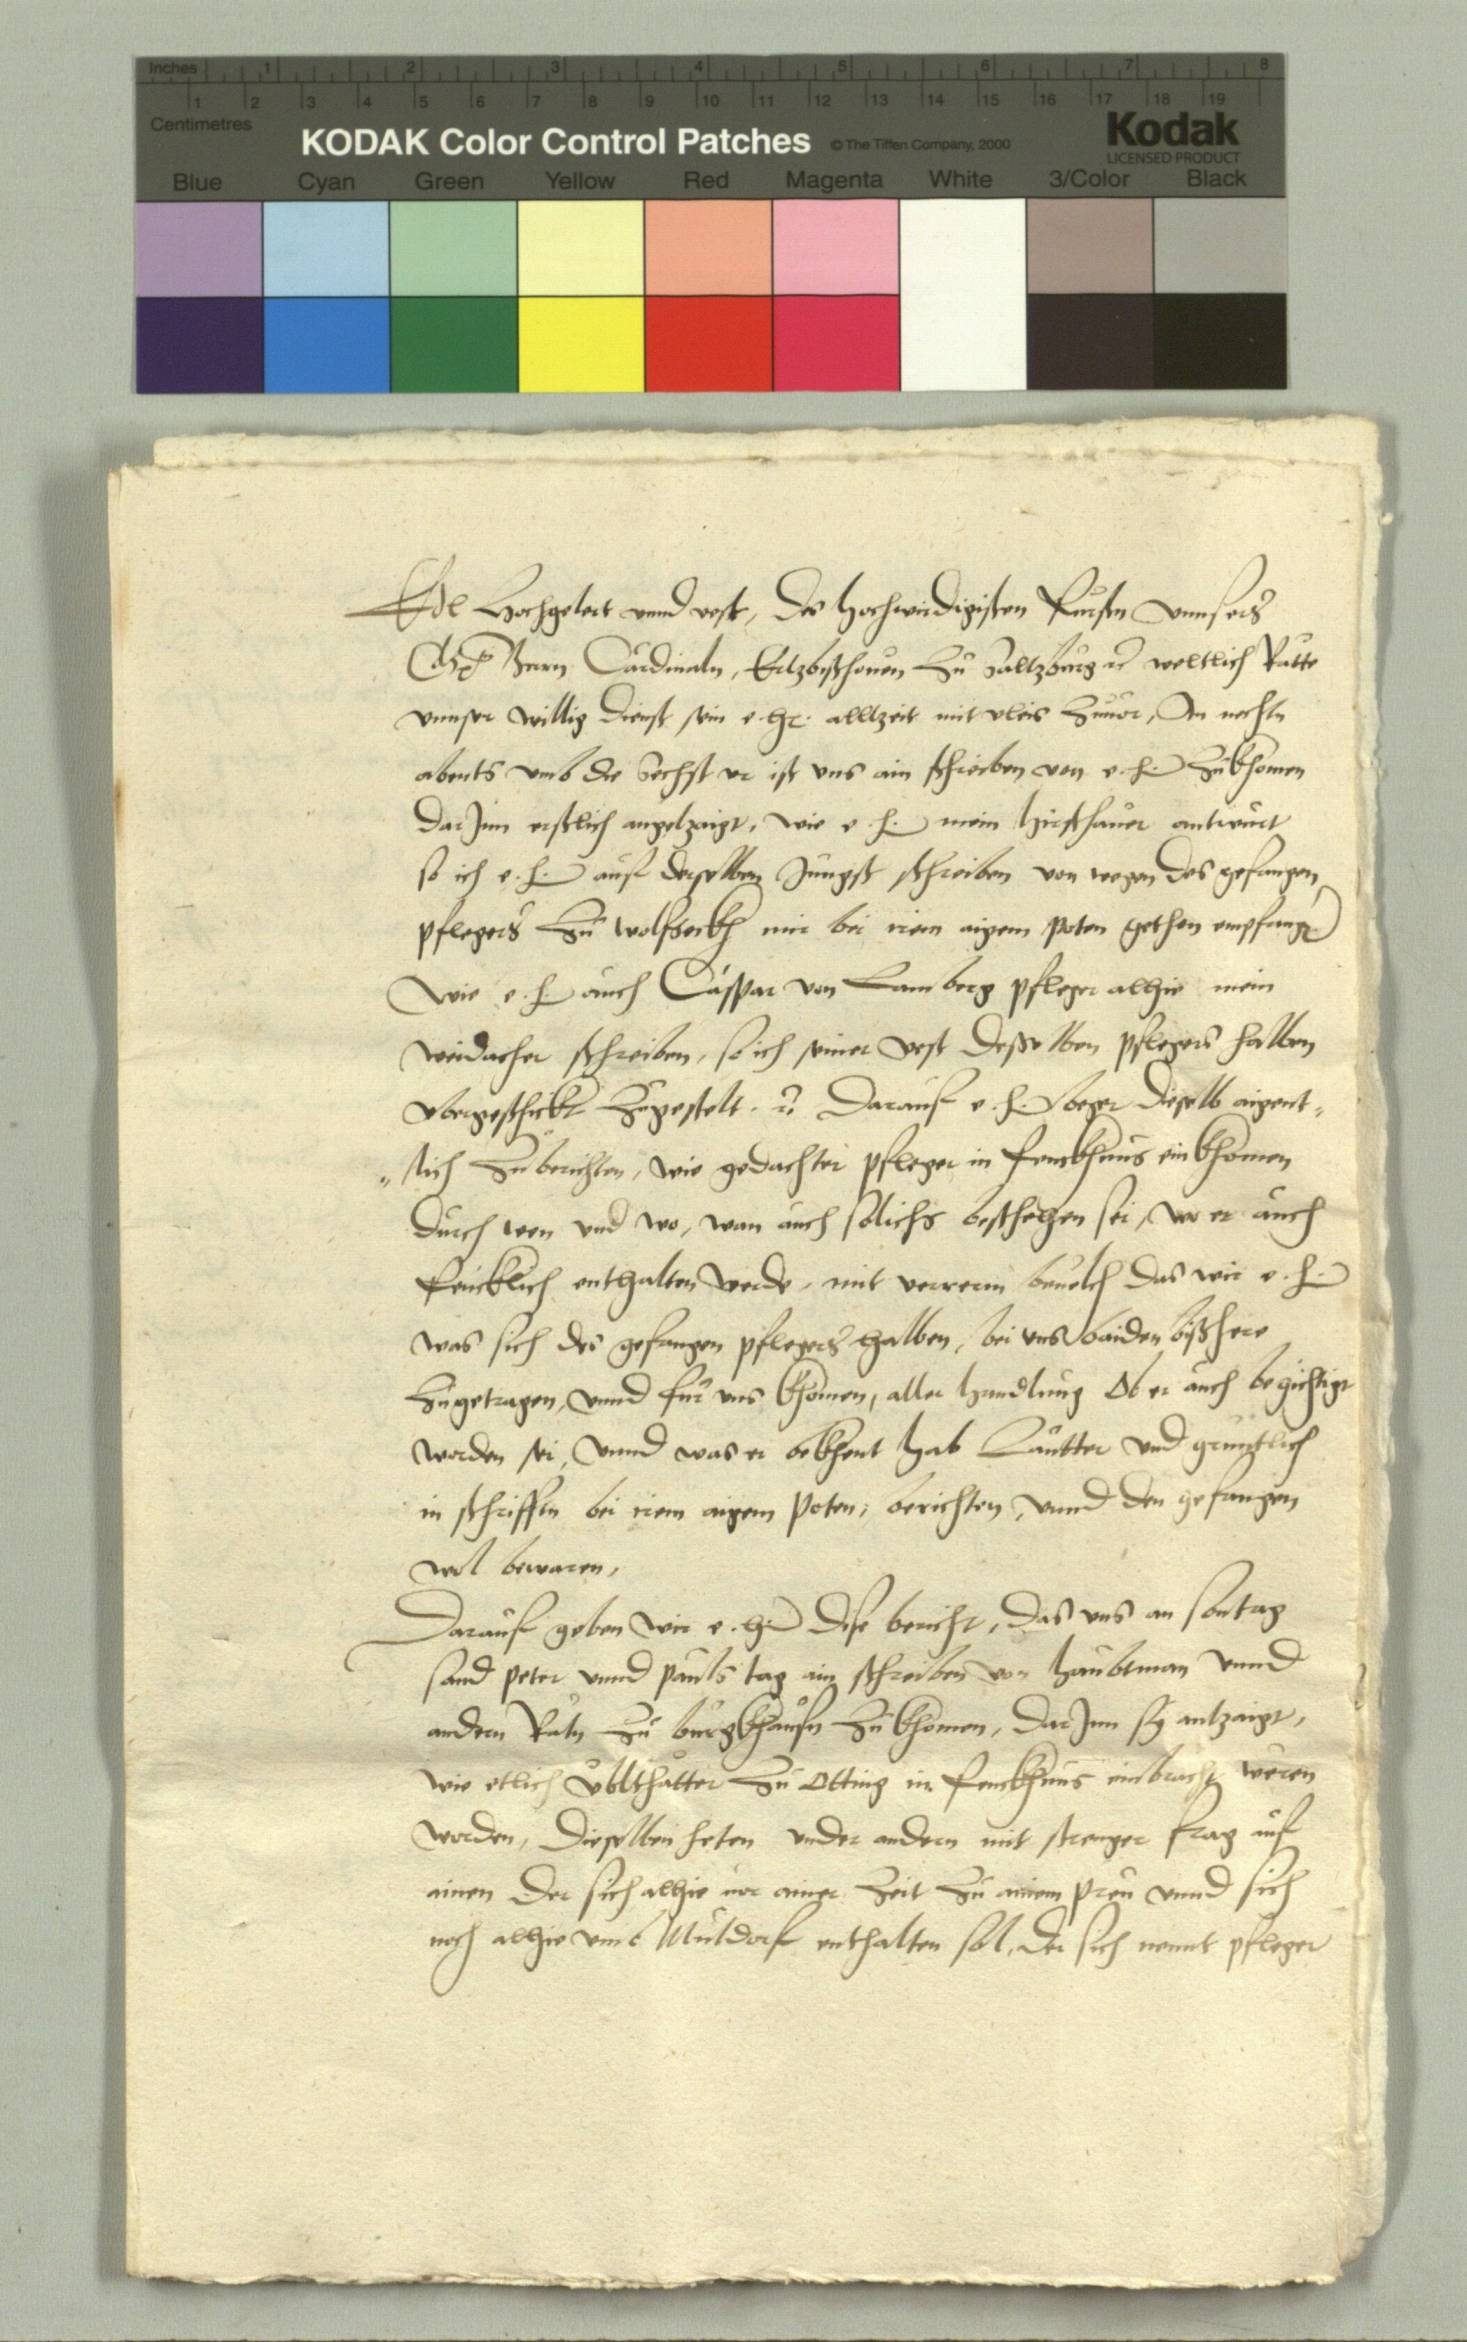 Inches 1 2 3 4 5 6 7 8
1 2 3 4 5 6 7 8 9 10 11 12 13 14 15 16 17 18 19
Centimetres
KODAK Color Control Patches © The Tiffen Company, 2000 Kodak
LICENSED PRODUCT
Blue Cyan Green Yellow Red Magenta White 3/Color Black
Edl Hochgelert vnnd vest, des hochwirdigisten Fursten vnnsers
Herrn Cardinaln, Ertzbischouen zu Saltzburg rc weltlich Rätte
vnnser willig dienst sein e. hr. alltzeit mit vleis zuuor, An nechtn
abents vmb die Sechst vr ist vns ain schreiben von e. h. zukhomen
darJnn erstlich angetzaigt, wie e. h. mein hirschauer antwurt
so ich e. h. auf derselben Jungst schreiben von wegen des gefangen
pflegers zu wolfseckh mir bei irem aigem poten gethon empfangen
wie e. h. auch Caspar von Lamberg pfleger alhie mein
weidacher schreiben, so ich seiner vest desselben pflegers halben
vbergeschickt zugestelt. rc darauf e. h. beger dieselb aigent„
„lich zu berichten, wie gedachter pfleger in fenckhnus einkhomen
durch wen vnd wo, wan auch solichs beschehen sei, wo er auch
fencklich enthalten werde, mit verrerm beuelch das wir e. h.
was sich des gefangen pflegers halben, bei vns baiden bisshere
zugetragen, vnnd fur vns khomen, aller handlung Ob er auch begichtigt
worden sei, vnnd was er bekhent hab Lautter vnd gruntlich
in schrifftn bei irem aigem poten, berichten, vnnd den gefangen
wol bewaren,
Darauf geben wir e. h. dise bericht, das vns an Sontag
sand peter vnnd pauls tag ain schreiben von haubtman vnnd
andern Rätn zu burgkhausn zu khomen, darJnn sy antzaigt,
wie etlich vblthätter zu Otting in fenckhnus einbracht weren
worden, dieselben heten vnder andern mit strenger frag auf
ainen der sich alhie vor ainer zeit zu ainem preu vnnd sich
noch alhie vmb Muldorf enthalten sol, der sich nennt pfleger